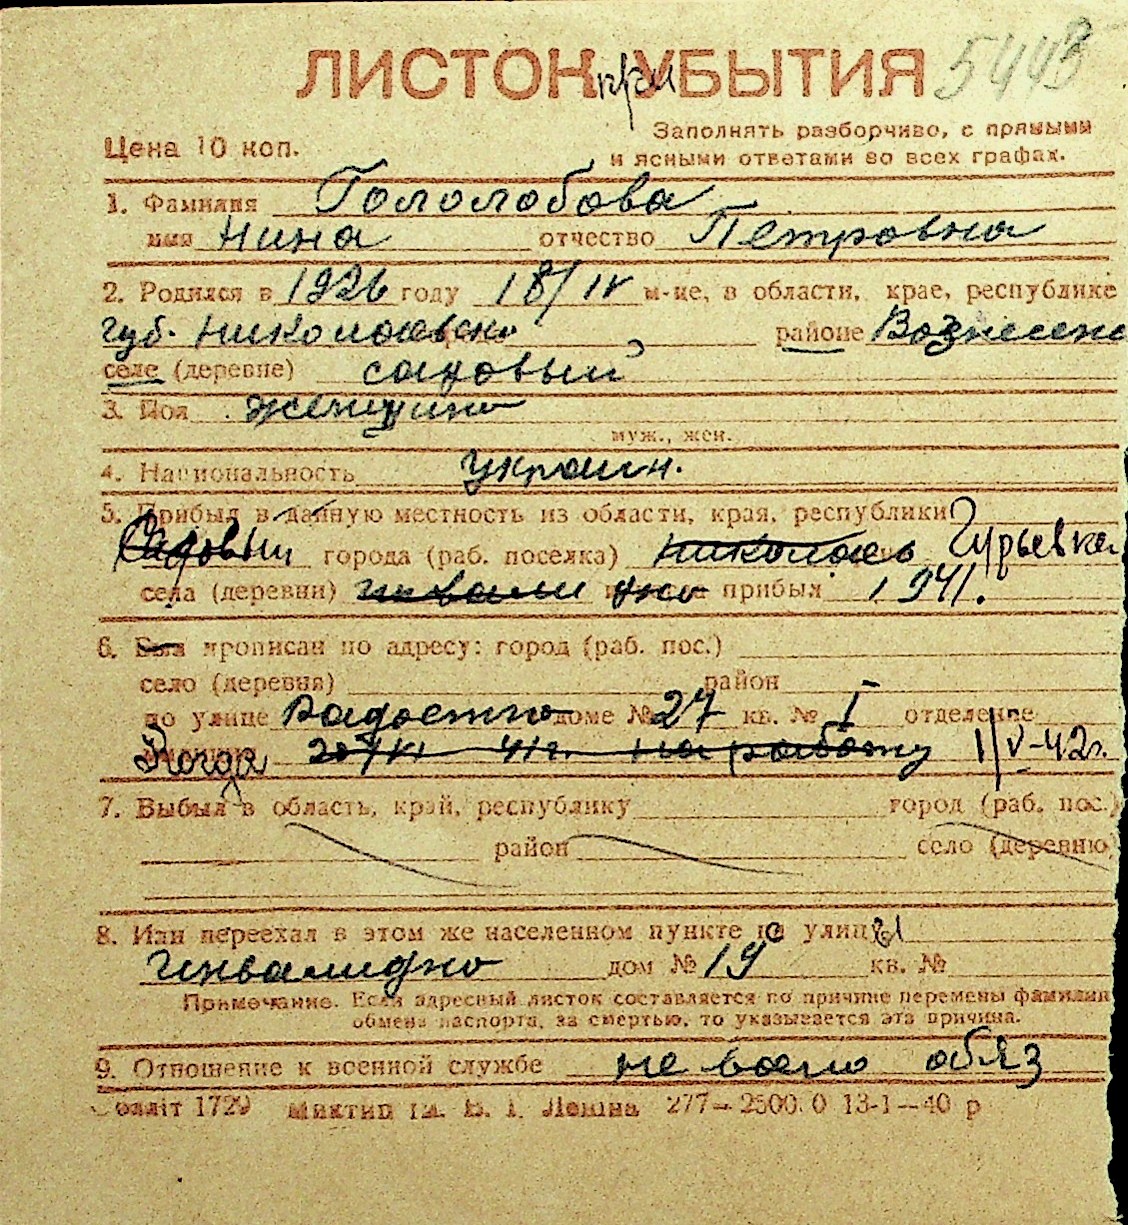 ЛИСТОК при УБЫТИЯ 5443
Цена 10 коп.
Заполнять разборчиво, с прямыми
и ясными ответами во всех графах.
1. Фамилия Гололобова
имя Нина отчество Петровна
2. Родился в 1926 году 18/IV м-це, в области, крае, республике
губ. Николаевско районе Вознесенс
селе (деревне) садовый
3. Пол женщина
муж., жен.
4. Национальность украин.
5. Прибыл в данную местность из области, края, республики
Садовый города (раб. поселка) Николаев Гурьевка
села (деревни) прибыл 1941.
6. Был прописан по адресу: город (раб. пос.)
село (деревня) район
по улице Радостно доме № 27 кв. № 1 отделение
Когда 41г. на работу 1/V-42г.
7. Выбыл в область, край, республику город (раб. пос.)
район село (деревню)
8. Или переехал в этом же населенном пункте по улицы
Инвалидно дом № 19 кв. №
Примечание. Если адресный листок составляется по причине перемены фамилии
обмена паспорта, за смертью, то указывается эта причина.
9. Отношение к военной службе не воено обяз
1729 им. В. І. Леніна 277—2500.0 13-1—40 р